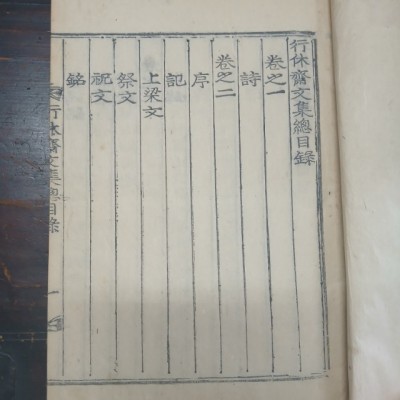 行休齋文集總目錄
卷之一
詩
卷之二
序
記
上梁文
祭文
祝文
銘
行休齋文集總目錄
一